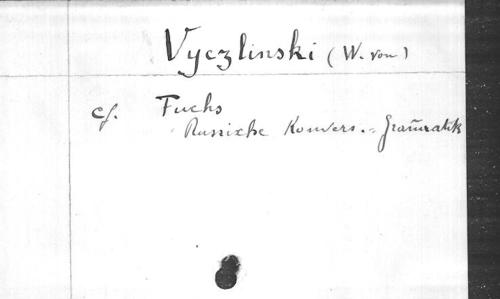 Vyczlinski (W. von)
cf. Fuchs
Russische Konvers.=Gram̄atik